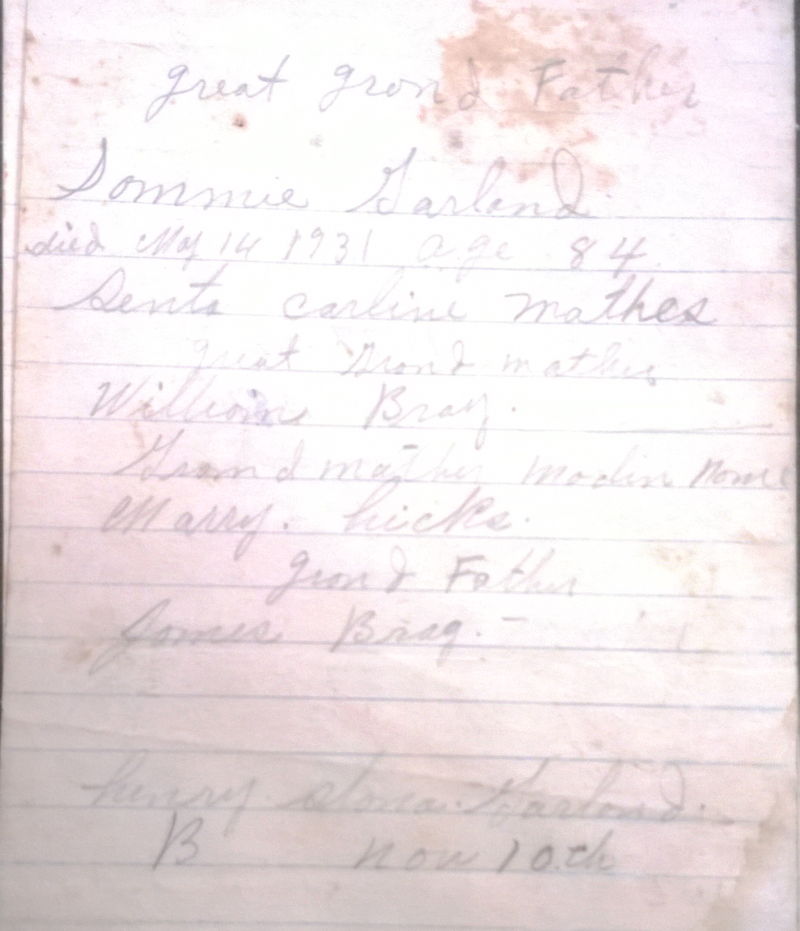 great grand Father
Sammie Garland
died May 14 1931 age 84
carline mathes
great Grand mather
William Bray.
Grand mather modin Name
Marry. hicks.
grand Father
James Bray.
henry Garland.
B Nov 10th